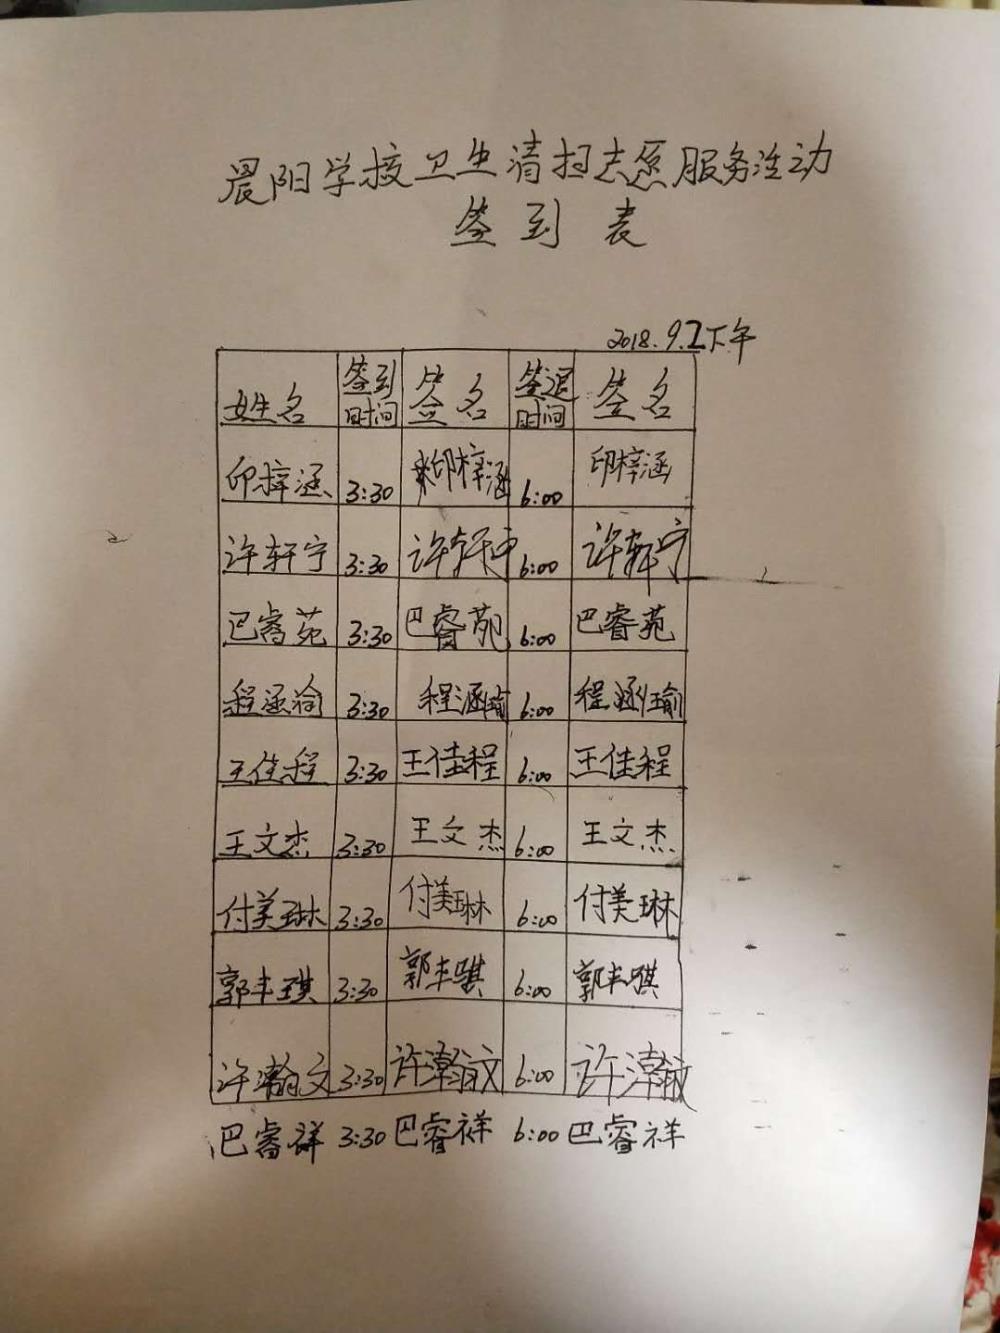 晨阳学校卫生清扫志愿服务活动
签到表
2018.9.2下午
姓名 签到时间 签名 签退时间 签名
印梓涵 3:30 印梓涵 6:00 印梓涵
许轩宁 3:30 许轩宁 6:00 许轩宁
巴睿苑 3:30 巴睿苑 6:00 巴睿苑
程涵瑜 3:30 程涵瑜 6:00 程涵瑜
王佳程 3:30 王佳程 6:00 王佳程
王文杰 3:30 王文杰 6:00 王文杰
付美琳 3:30 付美琳 6:00 付美琳
郭丰琪 3:30 郭丰骐 6:00 郭丰骐
许瀚文 3:30 许瀚文 6:00 许瀚文
巴睿祥 3:30 巴睿祥 6:00 巴睿祥